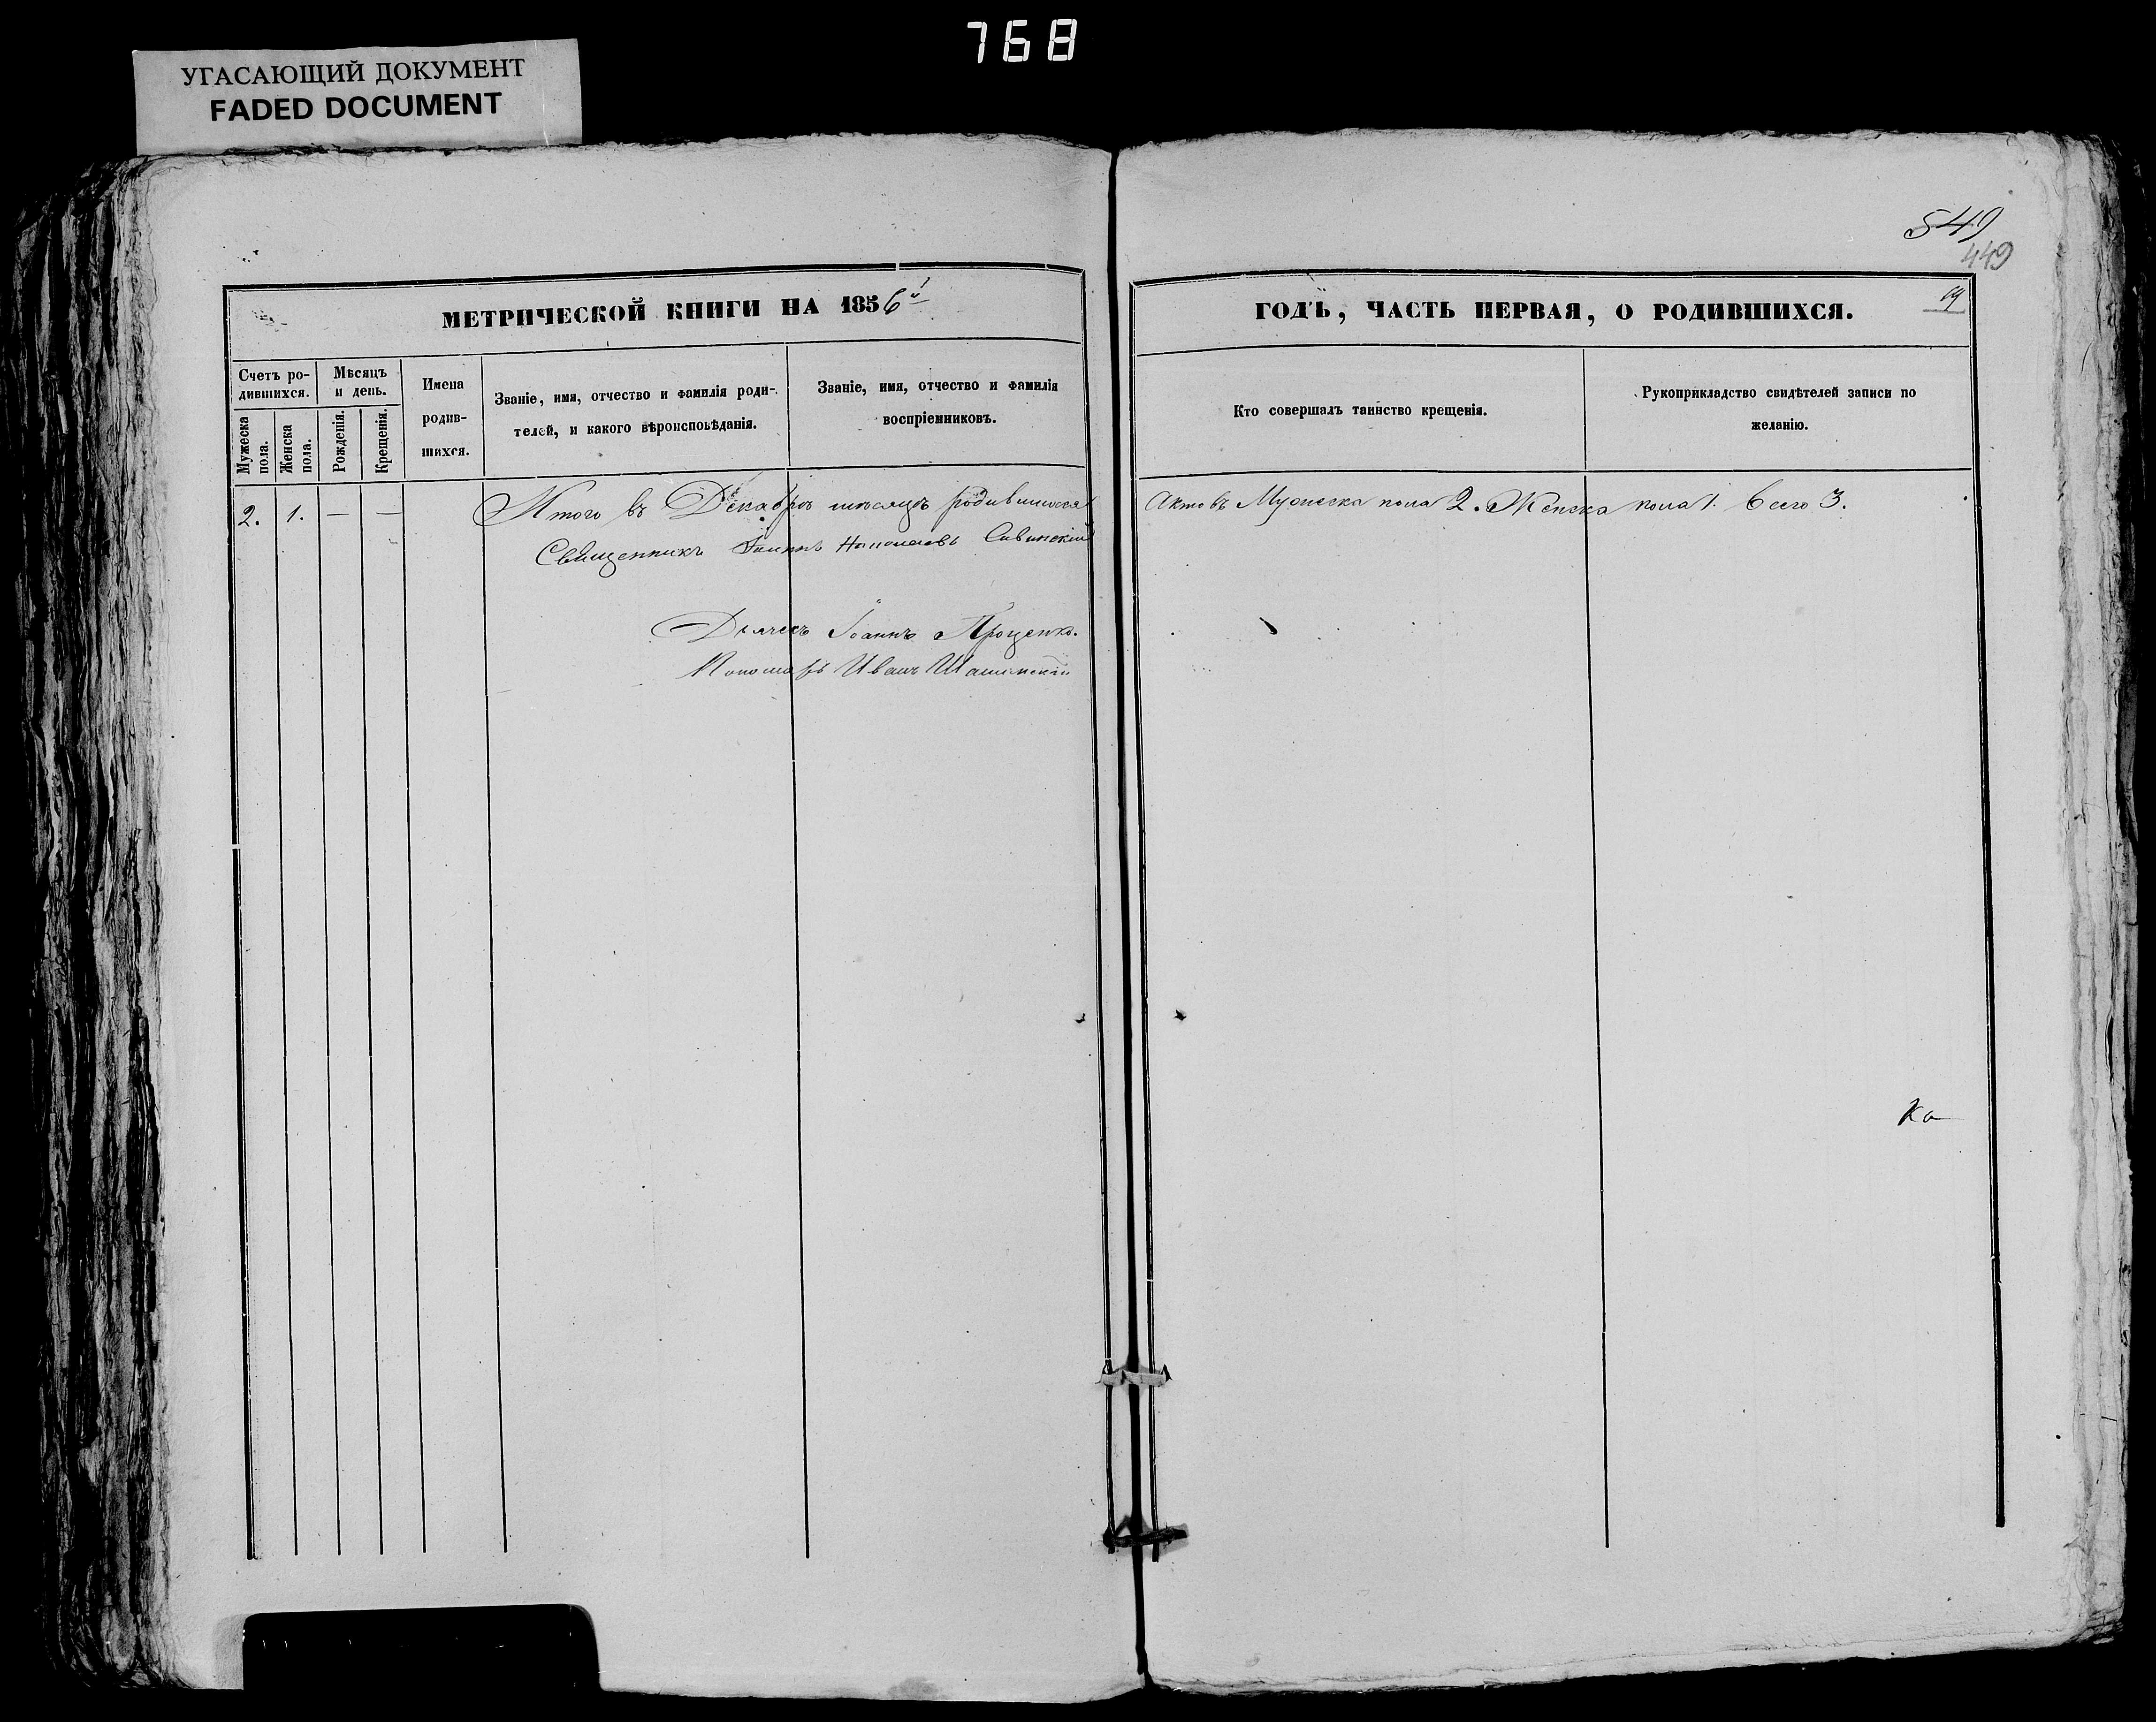 768
УГАСАЮЩИЙ ДОКУМЕНТ
FADED DOCUMENT
549
449
МЕТРИЧЕСКОЙ КНИГИ НА 1856й
Счетъ ро-
дившихся.
Мужеска
пола.
Женска
пола.
Мѣсяцъ
и день.
Рожденія.
Крещенія.
Имена
родив-
шихся.
Званіе, имя, отчество и фамилія роди-
телей, и какого вѣроисповѣданія.
Званіе, имя, отчество и фамилія
воспріемниковъ.
2. 1. — — Итого въ Декабрѣ мѣсяцѣ родившихся
Священникъ Іоаннъ
Дьячекъ Іоаннъ Проценко.
Пономарь Иванъ
ГОДЪ, ЧАСТЬ ПЕРВАЯ, О РОДИВШИХСЯ.
Кто совершалъ таинство крещенія.
Рукоприкладство свидѣтелей записи по
желанію.
Актовъ Мужеска пола 2. Женска пола 1. Всего 3.
Ка